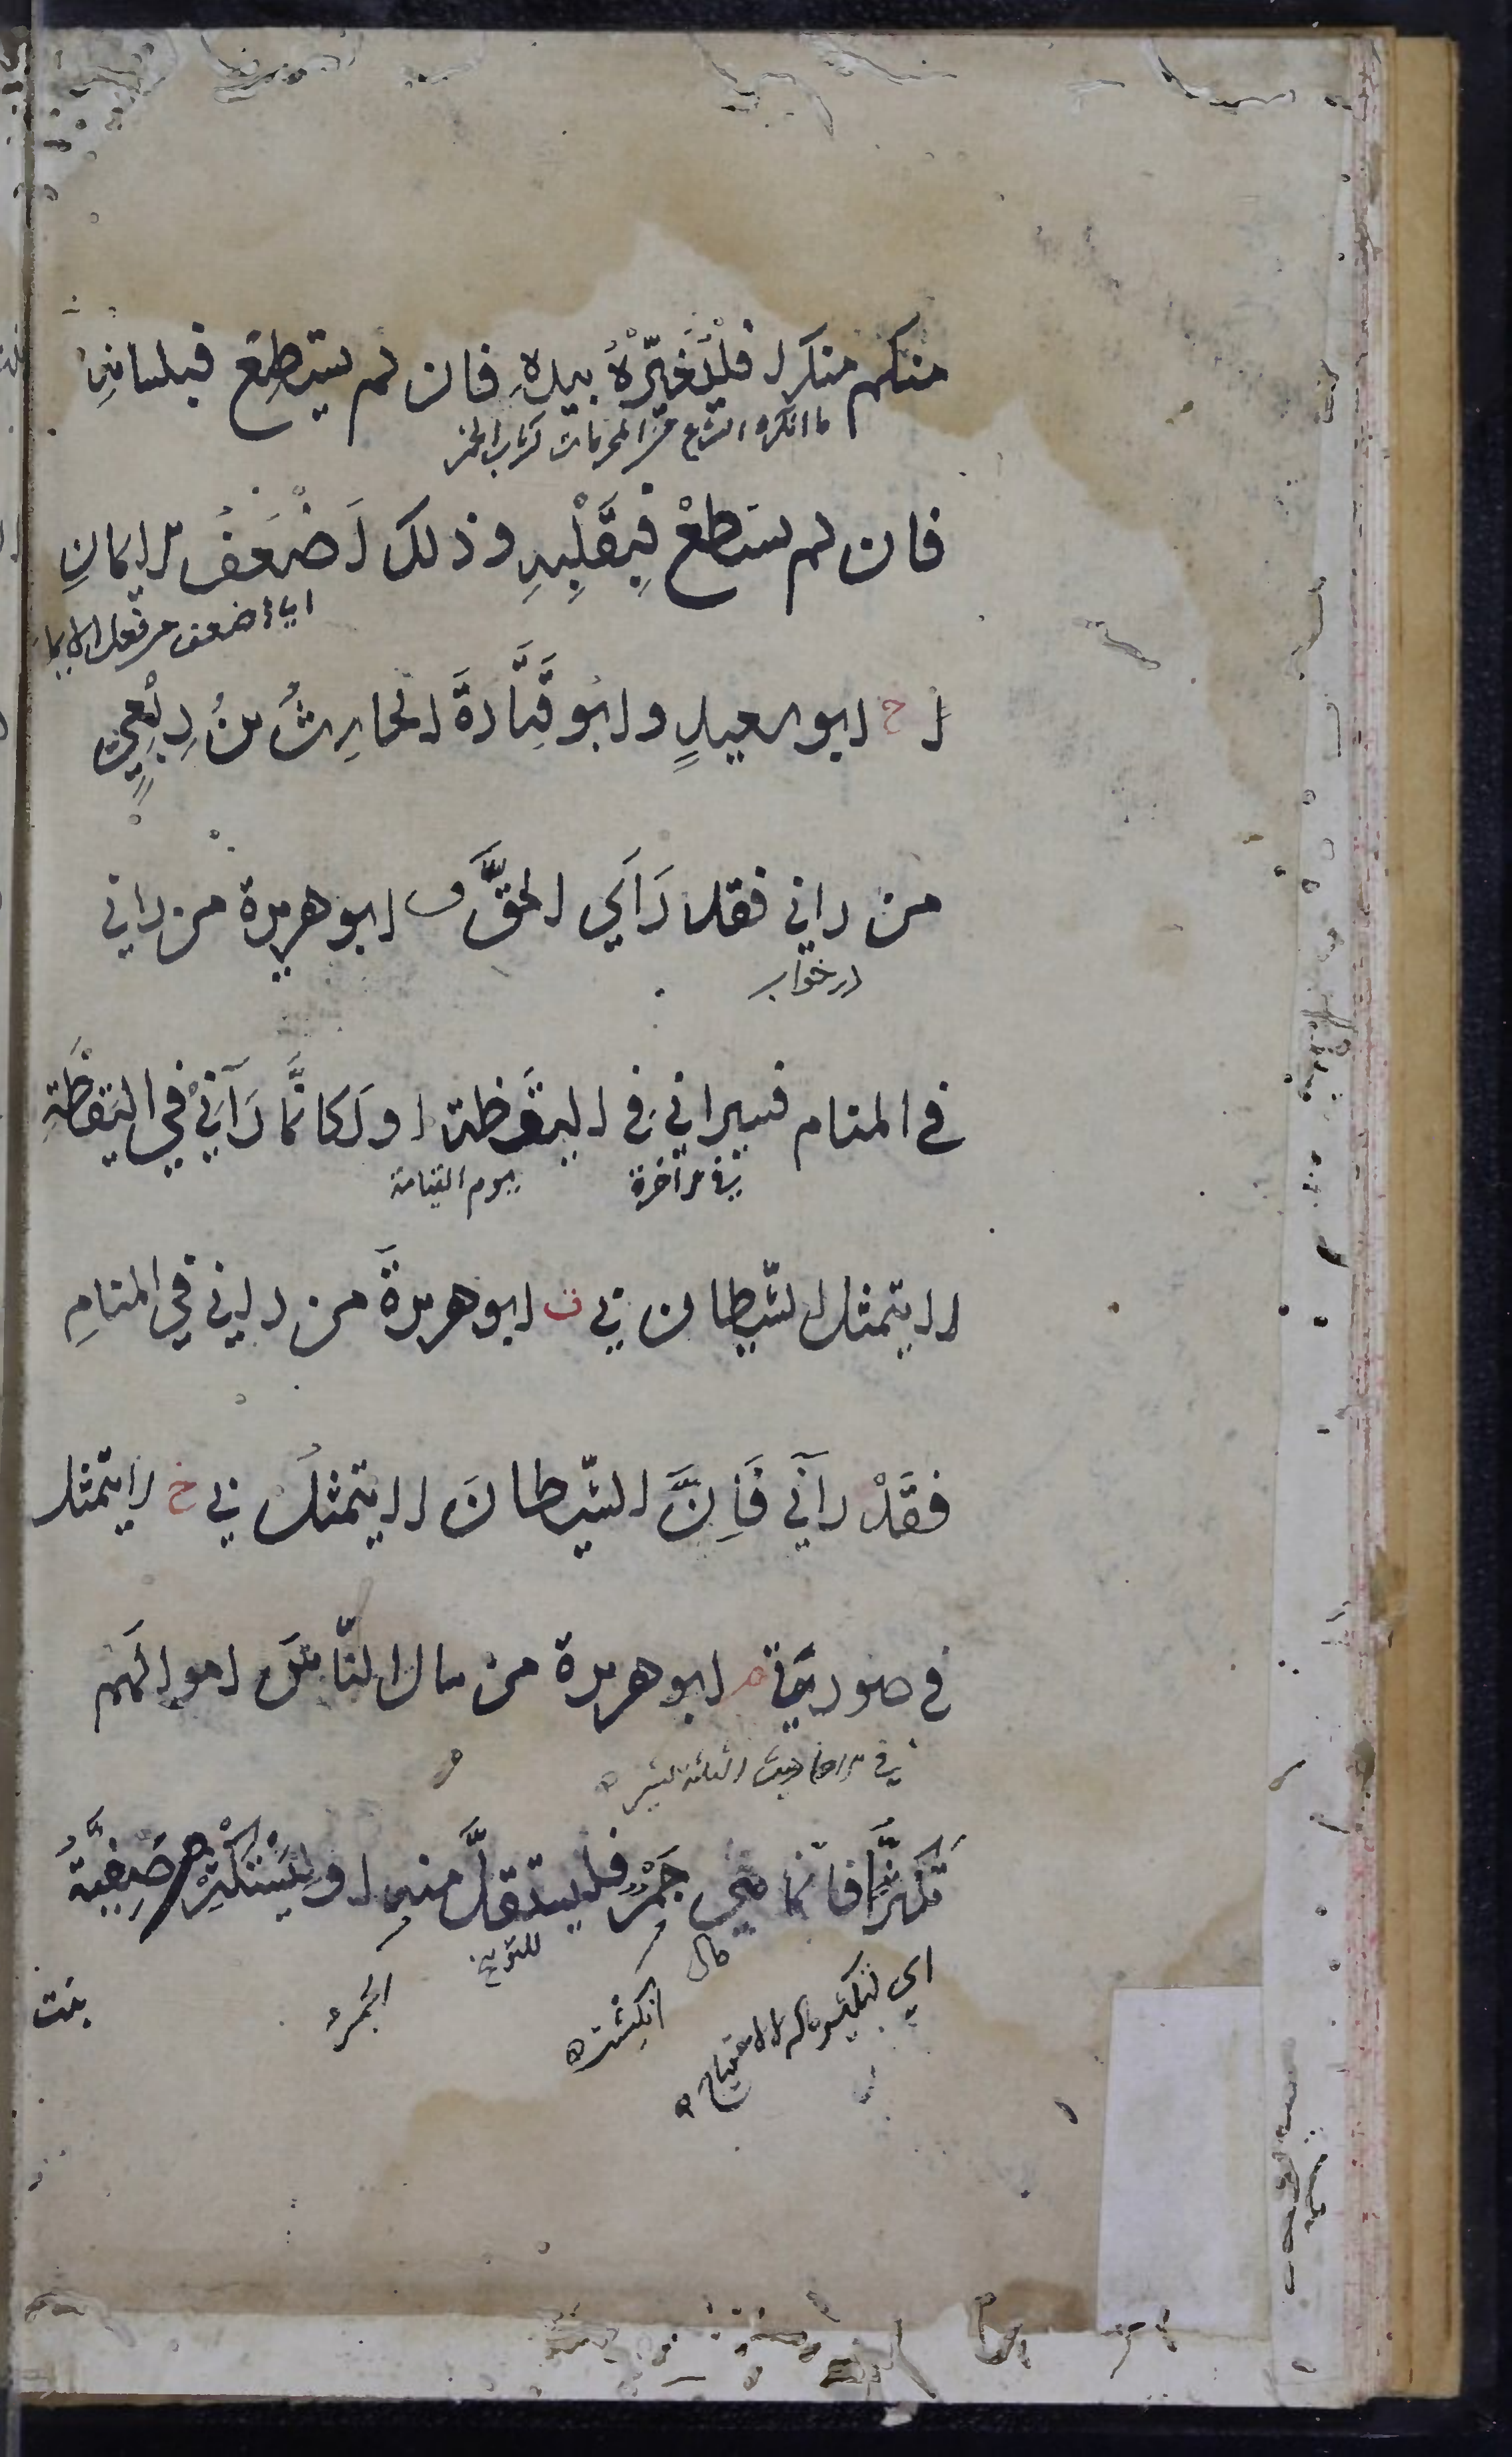 منكم منكرا فَلْيُغَيِّرْهُ بيدِهِ فان لم يستطِعْ فبلسانِهِ
ما انكره الشرع من المحرمات كشرب الخمر
فان لم يستطعْ فبِقَلْبِهِ وذلك اَضْعَفُ الايمانِ
اي اضعف من فعل الايمان
خ ابو سعيدٍ وابو قَتَادةَ الحارِثُ بنُ رِبْعِيٍّ
من راني فقد رَاَي الحقَّ ق ابو هريرة من راني
در خواب
في المنام فسيراني في اليقَظة او لَكانَّما رَآنِيْ فِي اليَقظَةِ
في الآخرة
يوم القيامة
لا يتمثل الشيطان بي ق ابو هريرةَ من راني فِي المنامِ
فقَدْ رآني فَاِنَّ الشّيطانَ لا يتمثلُ بي خ لا يتمثل
في صورتي م ابو هريرة من سال النّاسَ اموالَهم
في الاحاديث الثلاثة
تَكَثُّرًا فانّما هي جَمْرٌ فليستقلَّ منه او لِيَسْتَكْثِرْ م صَفِيَّةُ
مال
للتوبيخ
اي ليكثر ماله لا للاحتياج
انكِشت
الجمر
بنت